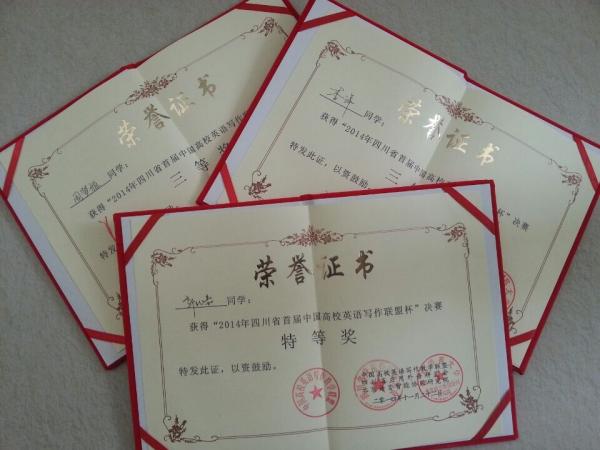 荣誉证书
同学：
获得“2014年四川省首届中国高校英语写作
三等奖
特发此证，以
荣誉证书
同学：
获得“2014年四川省首届中国高校英语写作
杯”决赛
三
特发此证，以资鼓励。
荣誉证书
同学：
获得“2014年四川省首届中国高校英语写作联盟杯”决赛
特等奖
特发此证，以资鼓励。
中国高校英语写作教学联盟
年十一月二十二日